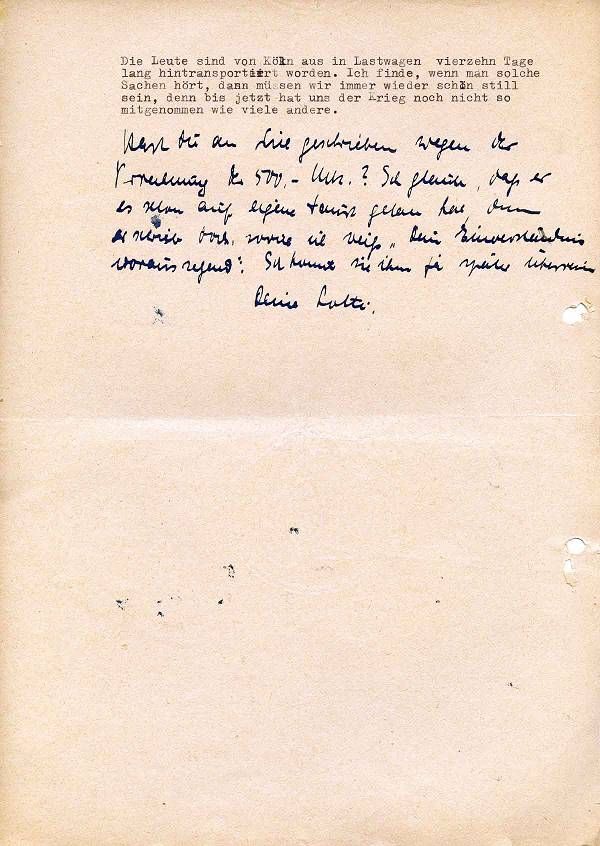 Die Leute sind von Köln aus in Lastwagen vierzehn Tage
lang hintransportiert worden. Ich finde, wenn man solche
Sachen hört, dann müssen wir immer wieder schön still
sein, denn bis jetzt hat uns der Krieg noch nicht so
mitgenommen wie viele andere.
Hast Du an geschrieben wegen der
der 500,- Mk.? Ich glaube, daß er
es schon auf eigene Faust getan hat, denn
er schrieb doch, soviel ich weiß, „Dein Einverständnis
voraussetzend". Ich konnte sie ihm ja später
Deine Lotti.